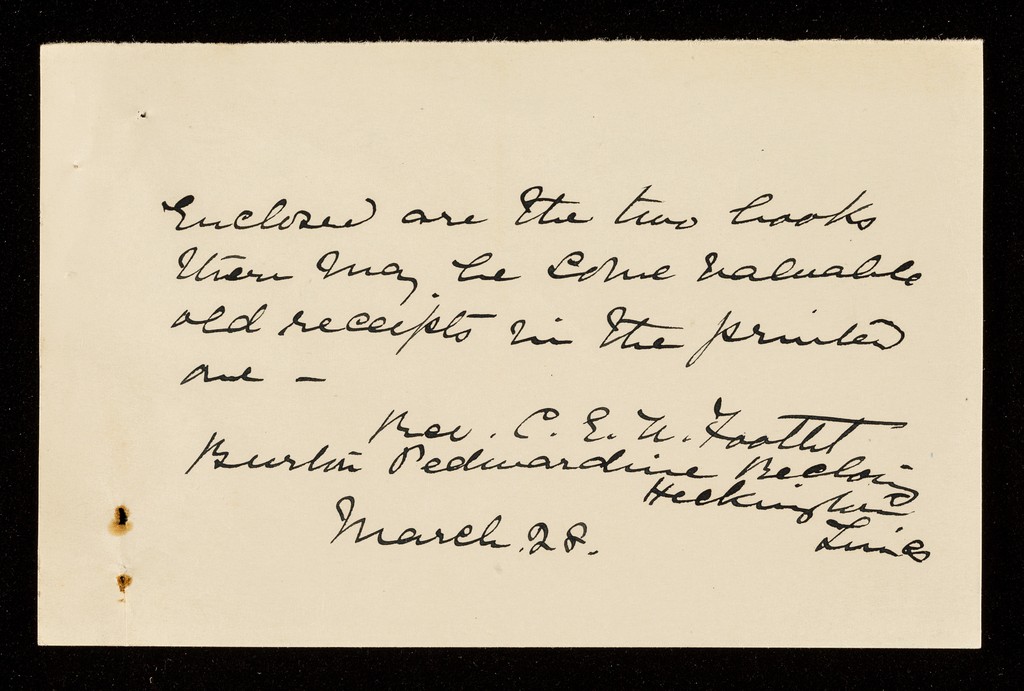 Enclosed are the two books
there may be some valuable
old receipts in the printed
one –
Rev. C. E. W. Foottit
Burton Pedwardine Rectory
Heckington
Lincs
March. 28.